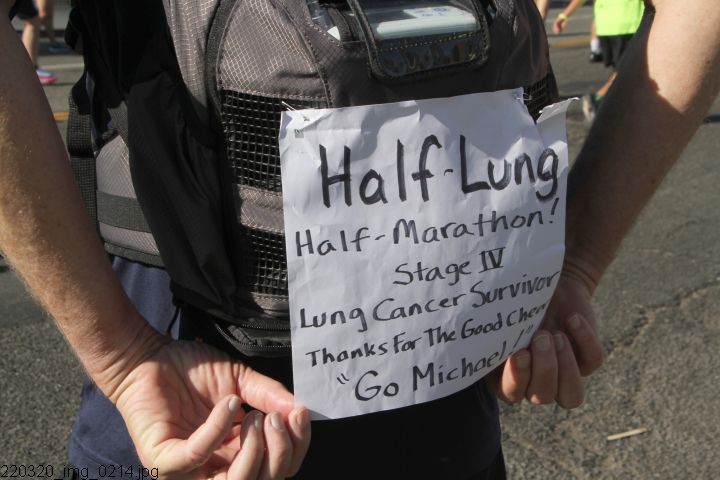 Half-Lung
Half-Marathon!
Stage IV
Lung Cancer Survivor
Thanks For The Good Cheer
"Go Michael!"
220320_img_0214.jpg